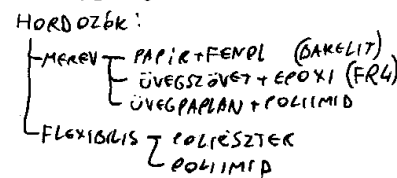 HORDOZÓK:
MEREV PAPÍR+FENOL (BAKELIT)
ÜVEGSZÖVET + EPOXI (FR4)
ÜVEGPAPLAN + POLIIMID
FLEXIBILIS POLIÉSZTER
POLIIMID